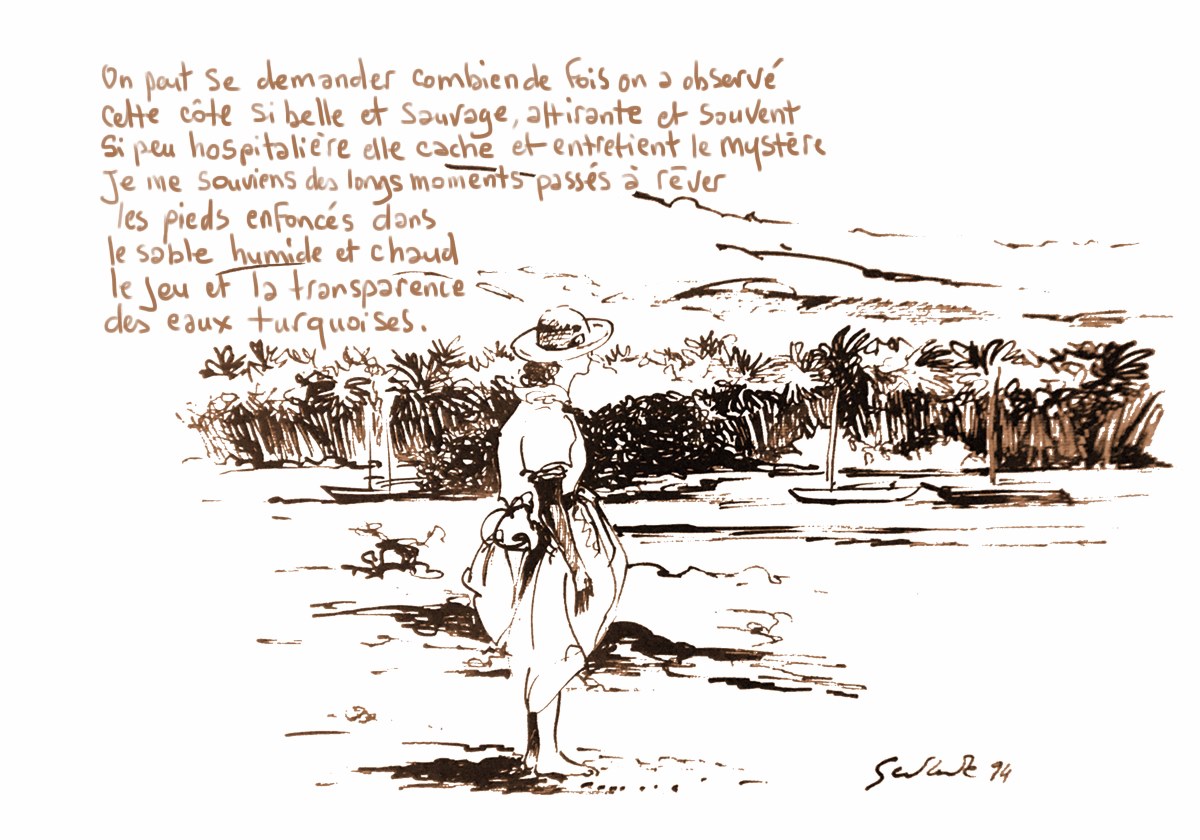 On peut se demander combien de fois on a observé
cette côte si belle et sauvage, attirante et souvent
si peu hospitalière elle cache et entretient le mystère
Je me souviens des longs moments passés à rêver
les pieds enfoncés dans
le sable humide et chaud
le jeu et la transparence
des eaux turquoises.
94